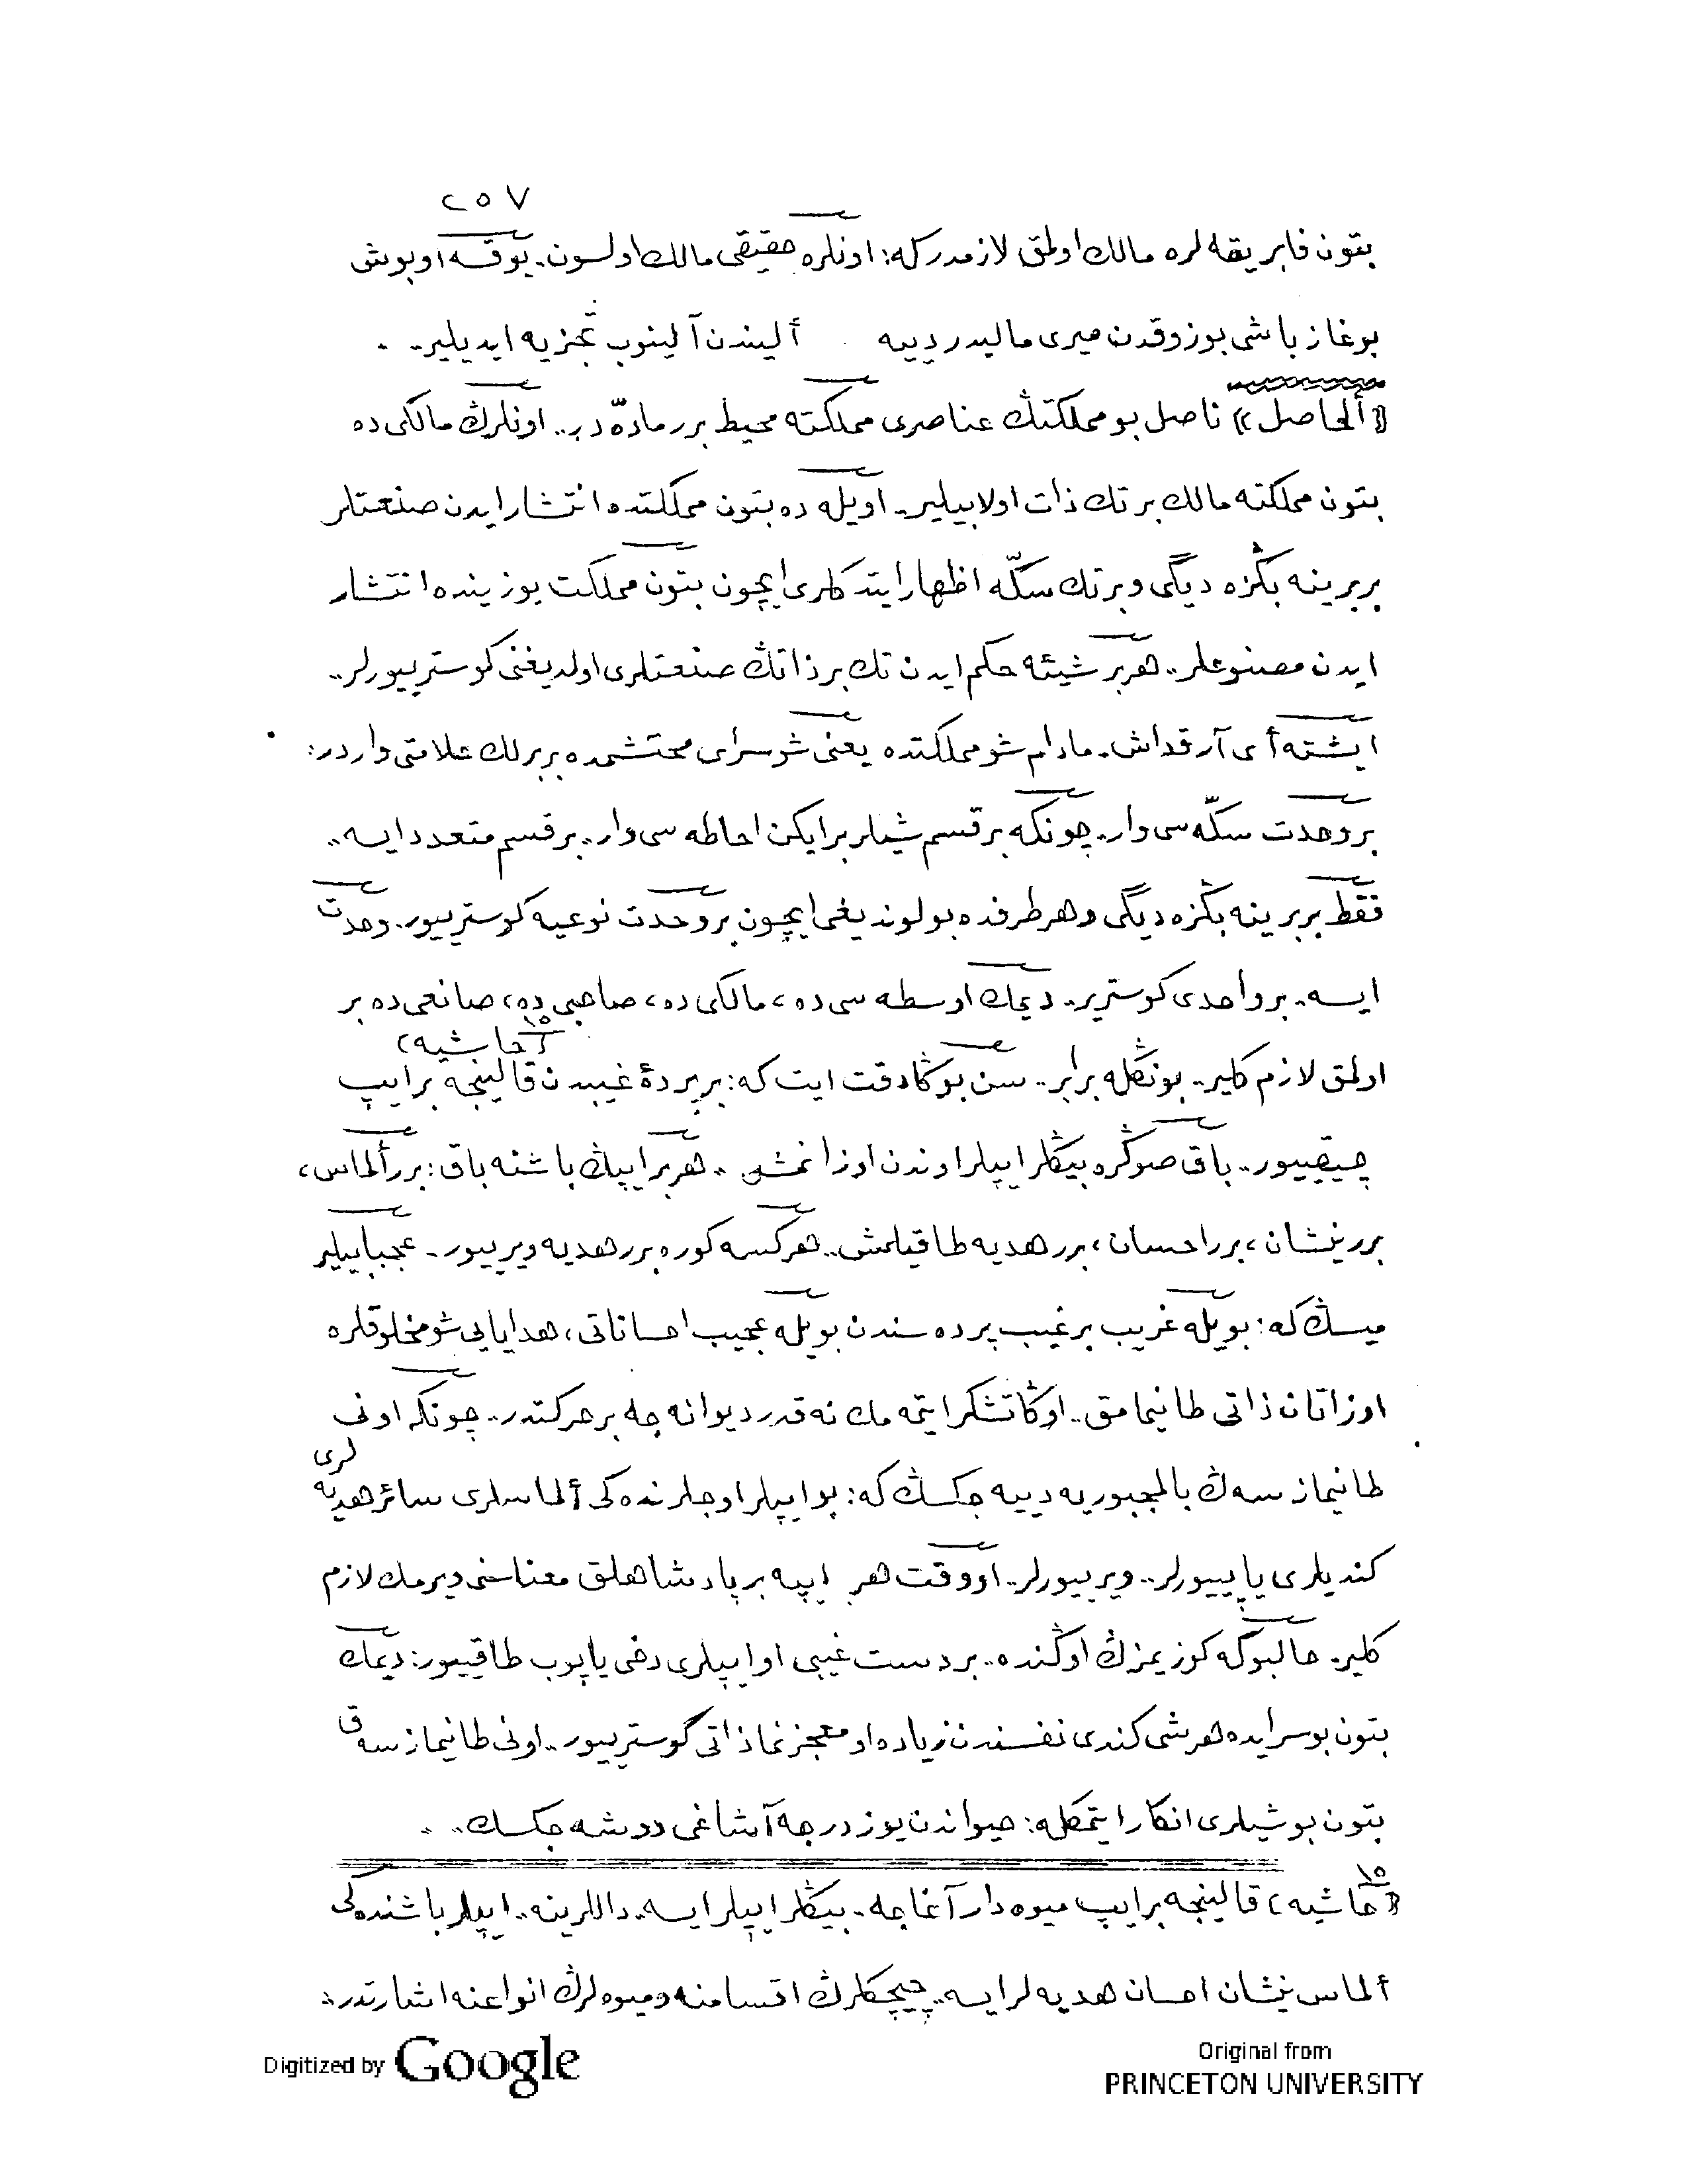 ٢٥٧
بتون فابريقه لره مالك اولمق لازمدركه: اونلره حقيقى مالك اولسون. يوقسه او بوش
بوغاز باشى بوزوقدن ميرى ماليدر دييه أليندن آلينوب تجزيه ايديلير..
«ألحاصل» ناصل بو مملكتڭ عناصرى مملكته محيط برر مادّه در.. اونلرڭ مالكى ده
بتون مملكته مالك بر تك ذات اولابيلير. اويله ده بتون مملكتده انتشار ايدن صنعتلر
بربرينه بڭزه ديگى و بر تك سكّه اظهار ايتدكلرى ايچون بتون مملكت يوزينده انتشار
ايدن مصنوعلر.. هر بر شيئه حكم ايدن تك بر ذاتڭ صنعتلرى اولديغنى كوسترييورلر..
ايشته أى آرقداش. مادام شو مملكتده يعنى شو سراى محتشمده بربرلك علامتى واردر:
بر وحدت سكّه سى وار. چونكه بر قسم شيلر بر ايكن احاطه سى وار.. بر قسم متعدد ايسه..
فقط بربرينه بڭزه ديگى و هر طرفده بولونديغى ايچون بر وحدت نوعيه كوسترييور. وحدت
ايسه. بر واحدى كوسترير.. ديمك اوسطه سى ده، مالكى ده، صاحبى ده، صانعى ده بر
(حاشيه) ١٥
اولمق لازم كلير.. بونڭله برابر.. سن بوڭا دقت ايت كه: بر پردۀ غيبدن قالينجه بر ايپ
چيقييور.. باق صوڭره بيڭلر ايپلر اوندن اوزانمش.. هر بر ايپڭ باشنه باق: برر ألماس،
برر نشان، برر احسان، برر هديه طاقيلمش.. هركسه كوره برر هديه ويرييور. عجبا بيلير
ميسڭ كه: بويله غريب بر غيب پرده سندن بويله عجيب احساناتى، هدايايى شو مخلوقلره
اوزاتان ذاتى طانيمامق.. اوڭا تشكر ايتمه مك نه قدر ديوانه جه بر حركتدر.. چونكه اونى
طانيمازسه ڭ بالمجبوريه دييه جكسڭ كه: بو ايپلر اوجلرنده كى ألماسلرى سائر هديه لرى
كنديلرى ياپييورلر.. ويرييورلر.. او وقت هر ايپه بر پادشاهلق معناسنى ويرمك لازم
كلير. حالبوكه كوزيمزڭ اوڭنده.. بر دست غيبى او ايپلرى دخى ياپوب طاقييور: ديمك
بتون بو سرايده هر شى كندى نفسندن زياده او معجزنما ذاتى كوسترييور.. اونى طانيمازسه ڭ
بتون بو شيلرى انكار ايتمكله: حيواندن يوز درجه آشاغى دوشه جكسك..
١٥ «حاشيه» قالينجه بر ايپ ميوه دار آغاجه. بيڭلر ايپلر ايسه.. داللرينه.. ايپلر باشنده كى
ألماس نشان احسان هديه لر ايسه.. چيچكلرڭ اقسامنه و ميوه لرڭ انواعنه اشارتدر:
Digitized by Google
Original from
PRINCETON UNIVERSITY